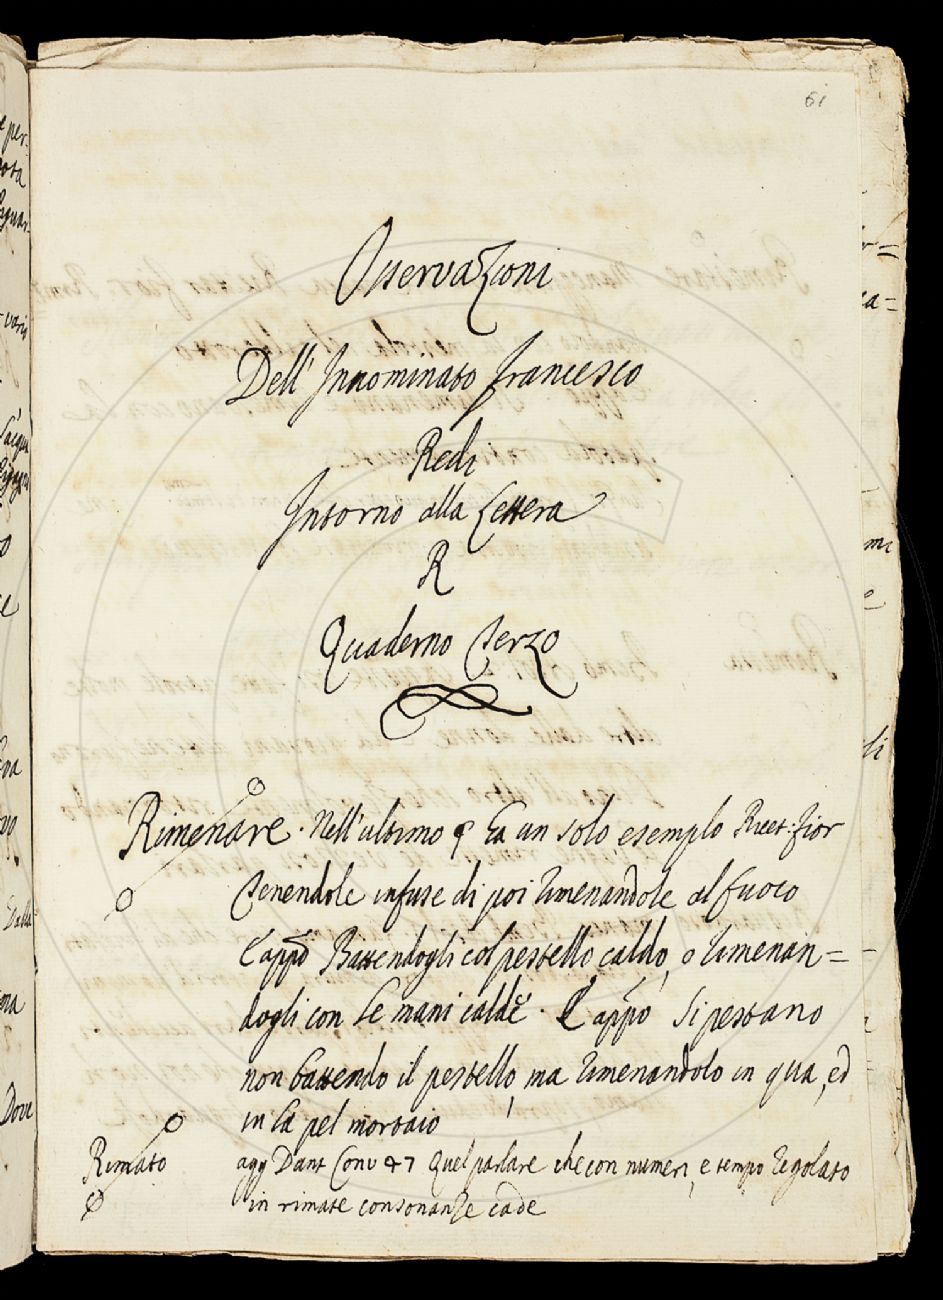 61
Osservazioni
Dell' Innominato Francesco
Redi
Intorno alla Lettera
R
Quaderno Terzo
Rimenare. Nell'ultimo § La un solo esemplo Ricet: fior
Tenendole infuse di poi rimenandole al fuoco
E appo Battendogli col pestello caldo, o rimenan=
dogli con le mani calde. E appo Si pestano
non battendo il pestello, ma rimenandolo in qua, ed
in la pel mortaio
Rimato agg Dant Conv 47 Quel parlare che con numeri, e tempo regolato
in rimate consonanze cade